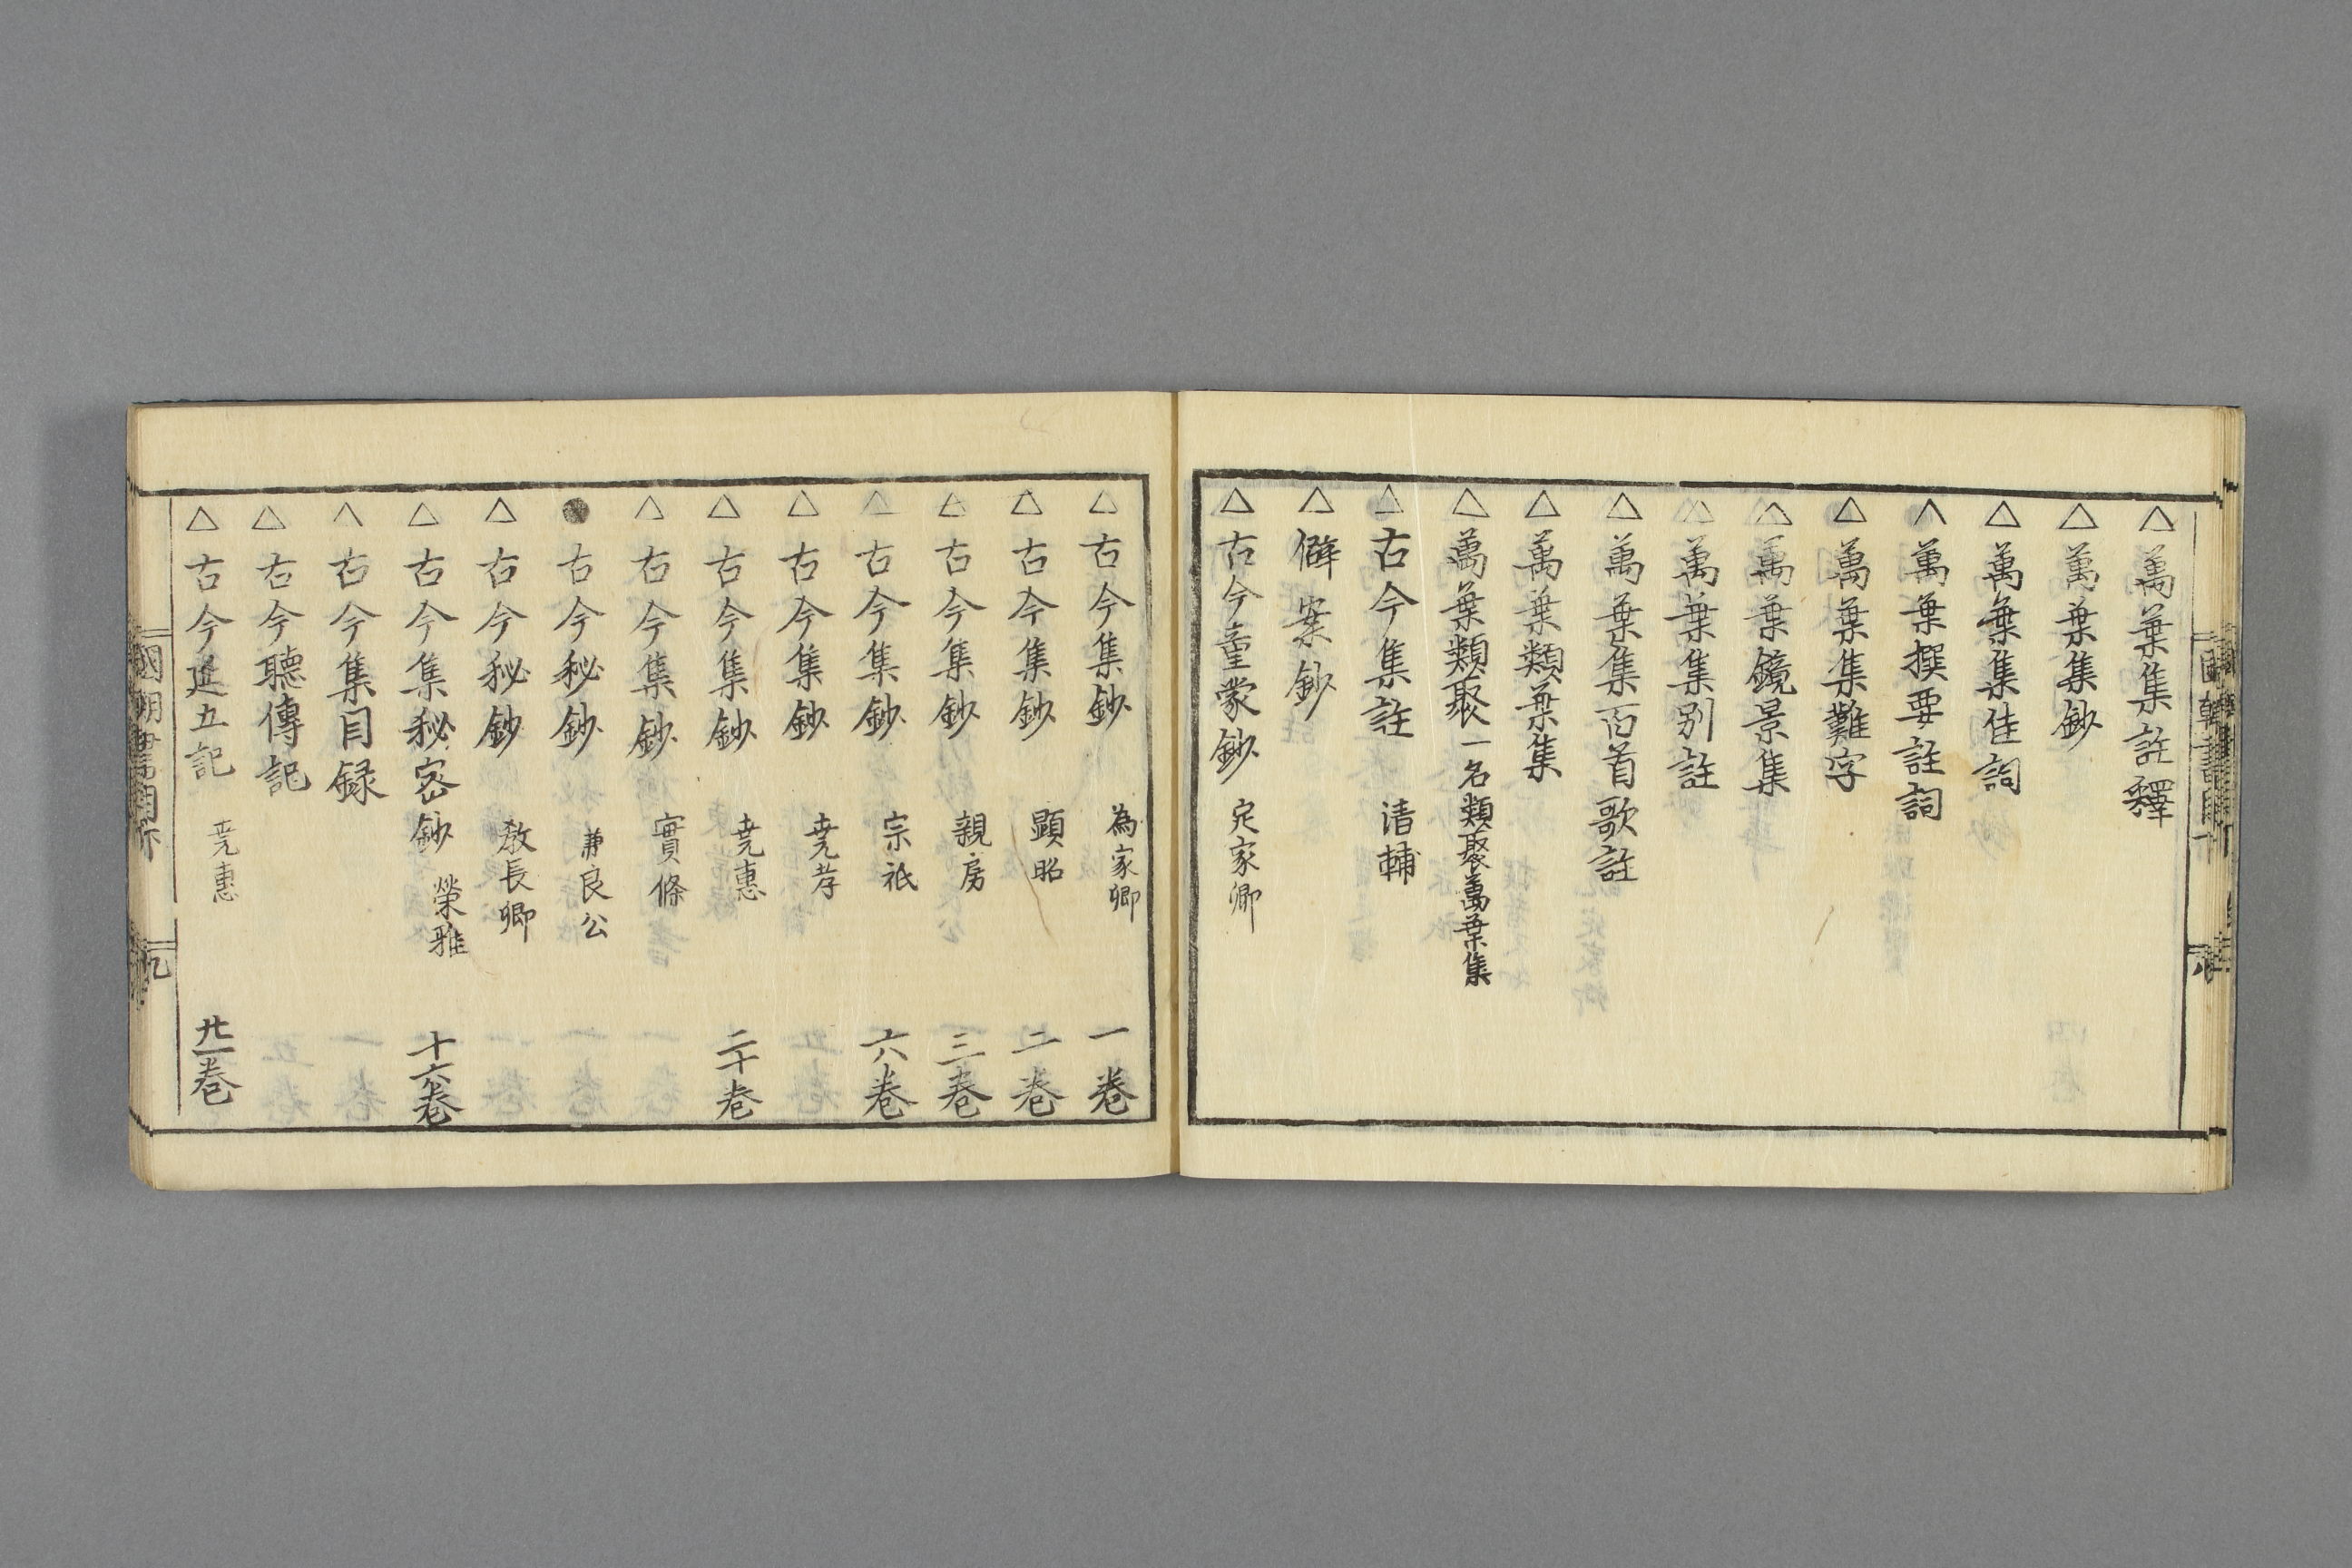 △萬葉集註釋
△萬葉集鈔
△萬葉集佳詞
△萬葉撰要註詞
△萬葉集難字
△萬葉鏡景集
△萬葉集別註
△萬葉集百首歌註
△萬葉類葉集
△萬葉類聚一名類聚萬葉集
△古今集註 清輔
△僻案鈔
△古今童蒙鈔 定家卿
△古今集鈔 為家卿 一巻
△古今集鈔 顕昭 二巻
△古今集鈔 親房 三巻
△古今集鈔 宗祇 六巻
△古今集鈔 尭孝
△古今集鈔 尭惠 二十巻
△古今集鈔 實條
●古今秘鈔 兼良公
△古今秘鈔 教長卿
△古今集秘密鈔 榮雅 十六巻
△古今集目録
△古今聽傳記
△古今延五記 尭惠 廿一巻
國朝書目
九